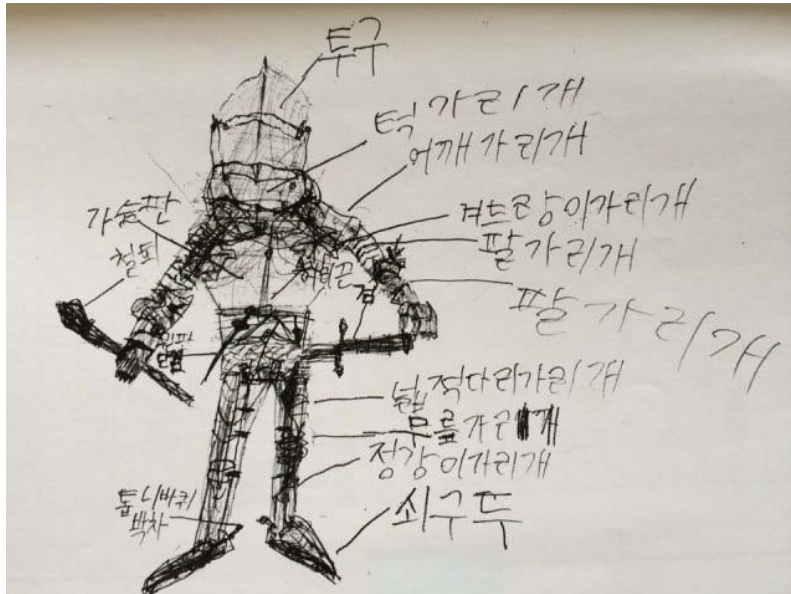 투구
턱가리개
어깨가리개
겨드랑이가리개
팔가리개
팔가리개
가슴판
철퇴
허리끈
검
넓적다리가리개
무릎가리개
정강이가리개
톱니바퀴
박차
쇠구두